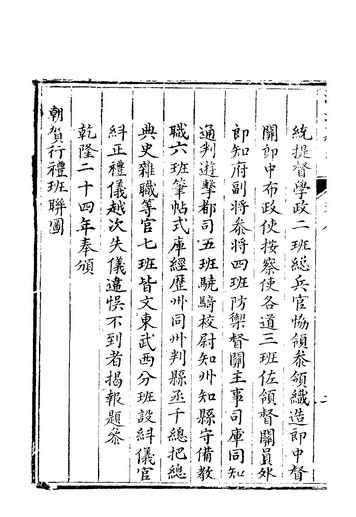 統提督學政二班總兵官協領叅領織造郎中督
關郎中布政使按察使各道三班佐領督關員外
郎知府副將叅將四班防禦督關主事司庫同知
通判遊擊都司五班驍騎校尉知州知縣守備教
職六班筆帖式庫經歷州同州判縣丞千總把總
典史雜職等官七班皆文東武西分班設糾儀官
糾正禮儀越次失儀違悞不到者揭報題叅
乾隆二十四年奉頒
朝賀行禮班聯圖